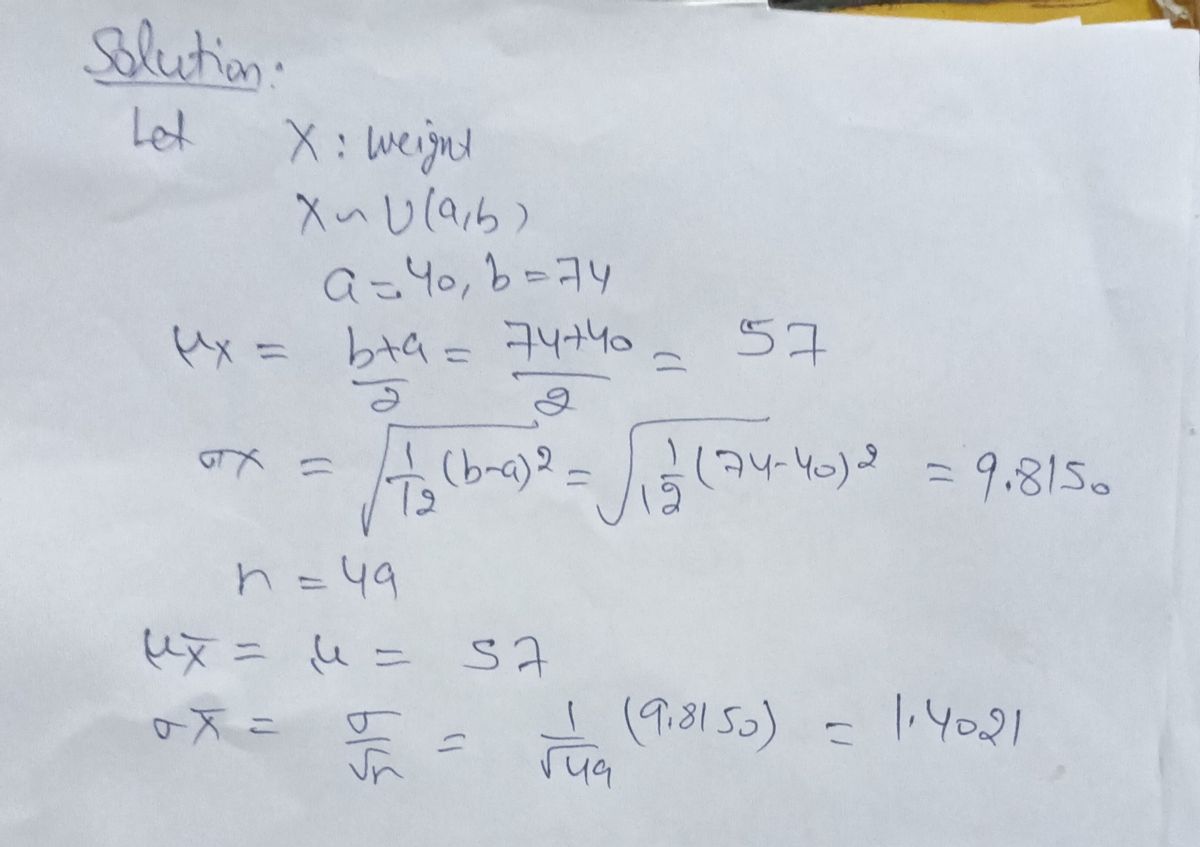 Solution:
Let X : weight
X ~ U(a,b)
a = 40, b = 74
μx = b+a/2 = 74+40/2 = 57
σx = √1/12 (b-a)² = √1/12 (74-40)² = 9.8150
n = 49
μx̄ = μ = 57
σx̄ = σ/√n = 1/√49 (9.8150) = 1.4021